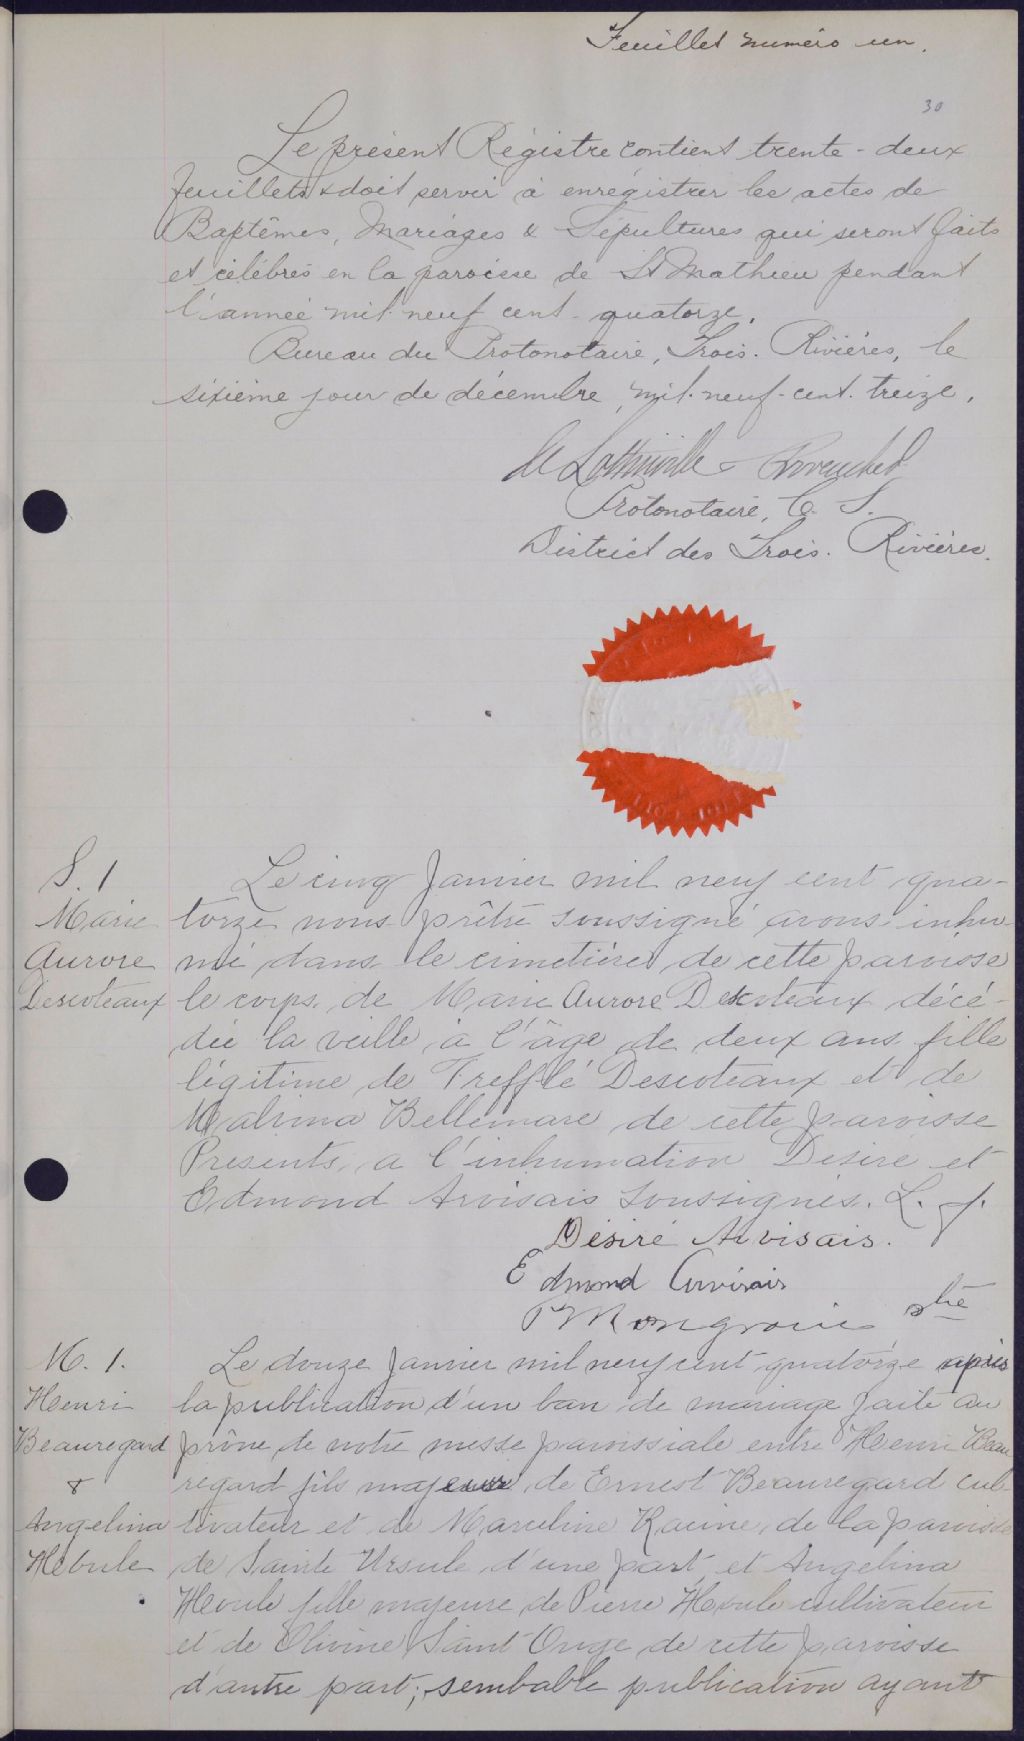 Feuillet numéro un.
30
Le présent Régistre contient trente-deux
feuillets & doit servir à enrégistrer les actes de
Baptêmes, Mariages & Sépultures qui seront faits
et célébrés en la paroisse de St Mathieu pendant
l'année mil neuf cent quatorze.
Bureau du Protonotaire, Trois-Rivières, le
sixième jour de décembre, mil-neuf-cent-treize.
Protonotaire, C. S.
District des Trois-Rivières.
S. 1
Marie
Aurore
Descoteaux
Le cinq Janvier mil neuf cent qua-
torze nous prêtre soussigné avons inhu-
mé dans le cimetière de cette paroisse
le corps de Marie Aurore Descoteaux décé-
dée la veille à l'âge de deux ans fille
légitime de Trefflé Descoteaux et de
Malvina Bellemare de cette paroisse
Présents, a l'inhumation Désiré et
Edmond Arvisais soussignés. L. f.
Désiré Arvisais.
Edmond Arvisais
Mongrain ptre
M. 1.
Henri
Beauregard
&
Angelina
Le douze Janvier mil neuf cent quatorze après
la publication d'un ban de mariage faite au
prône de notre messe paroissiale entre Henri Beau
regard fils majeur de Ernest Beauregard cul-
tivateur et de Marceline Racine, de la paroisse
de Sainte Ursule d'une part, et Angelina
fille majeure de Pierre cultivateur
et de Olivine Saint Onge de cette paroisse
d'autre part; sembable publication ayant